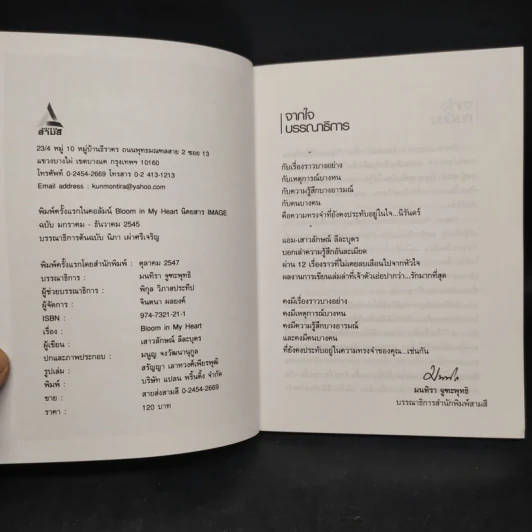 สามสี
23/4 หมู่ 10 หมู่บ้านธีราคร ถนนพุทธมณฑลสาย 2 ซอย 13
แขวงบางไผ่ เขตบางแค กรุงเทพฯ 10160
โทรศัพท์ 0-2454-2669 โทรสาร 0-2 413-1213
Email address : kunmontira@yahoo.com
พิมพ์ครั้งแรกในคอลัมน์ Bloom in My Heart นิตยสาร IMAGE
ฉบับ มกราคม - ธันวาคม 2545
บรรณาธิการต้นฉบับ นิภา เผ่าศรีเจริญ
พิมพ์ครั้งแรกโดยสำนักพิมพ์ : ตุลาคม 2547
บรรณาธิการ : มนทิรา จูฑะพุทธิ
ผู้ช่วยบรรณาธิการ : พิกุล วิภาสประทีป
ผู้จัดการ : จินตนา ผลยงค์
ISBN : 974-7321-21-1
เรื่อง : Bloom in My Heart
ผู้เขียน : เสาวลักษณ์ ลีละบุตร
ปกและภาพประกอบ : มนูญ จงวัฒนานุกูล
รูปเล่ม : สรัญญา เลาหวงค์เพียรพุฒิ
พิมพ์ : บริษัท แปลน พริ้นติ้ง จำกัด
ขาย : สายส่งสามสี 0-2454-2669
ราคา : 120 บาท
จากใจ
บรรณาธิการ
กับเรื่องราวบางอย่าง
กับเหตุการณ์บางหน
กับความรู้สึกบางอารมณ์
กับคนบางคน
คือความทรงจำที่ยังคงประทับอยู่ในใจ...นิรันดร์
แอม-เสาวลักษณ์ ลีละบุตร
บอกเล่าความรู้สึกอันละเอียด
ผ่าน 12 เรื่องราวที่ไม่เคยลบเลือนไปจากหัวใจ
ผลงานการเขียนเล่มล่าที่เจ้าตัวเอ่ยปากว่า...รักมากที่สุด
คงมีเรื่องราวบางอย่าง
คงมีเหตุการณ์บางหน
คงมีความรู้สึกบางอารมณ์
และคงมีคนบางคน
ที่ยังคงประทับอยู่ในความทรงจำของคุณ...เช่นกัน
มนทิรา จูฑะพุทธิ
บรรณาธิการสำนักพิมพ์สามสี